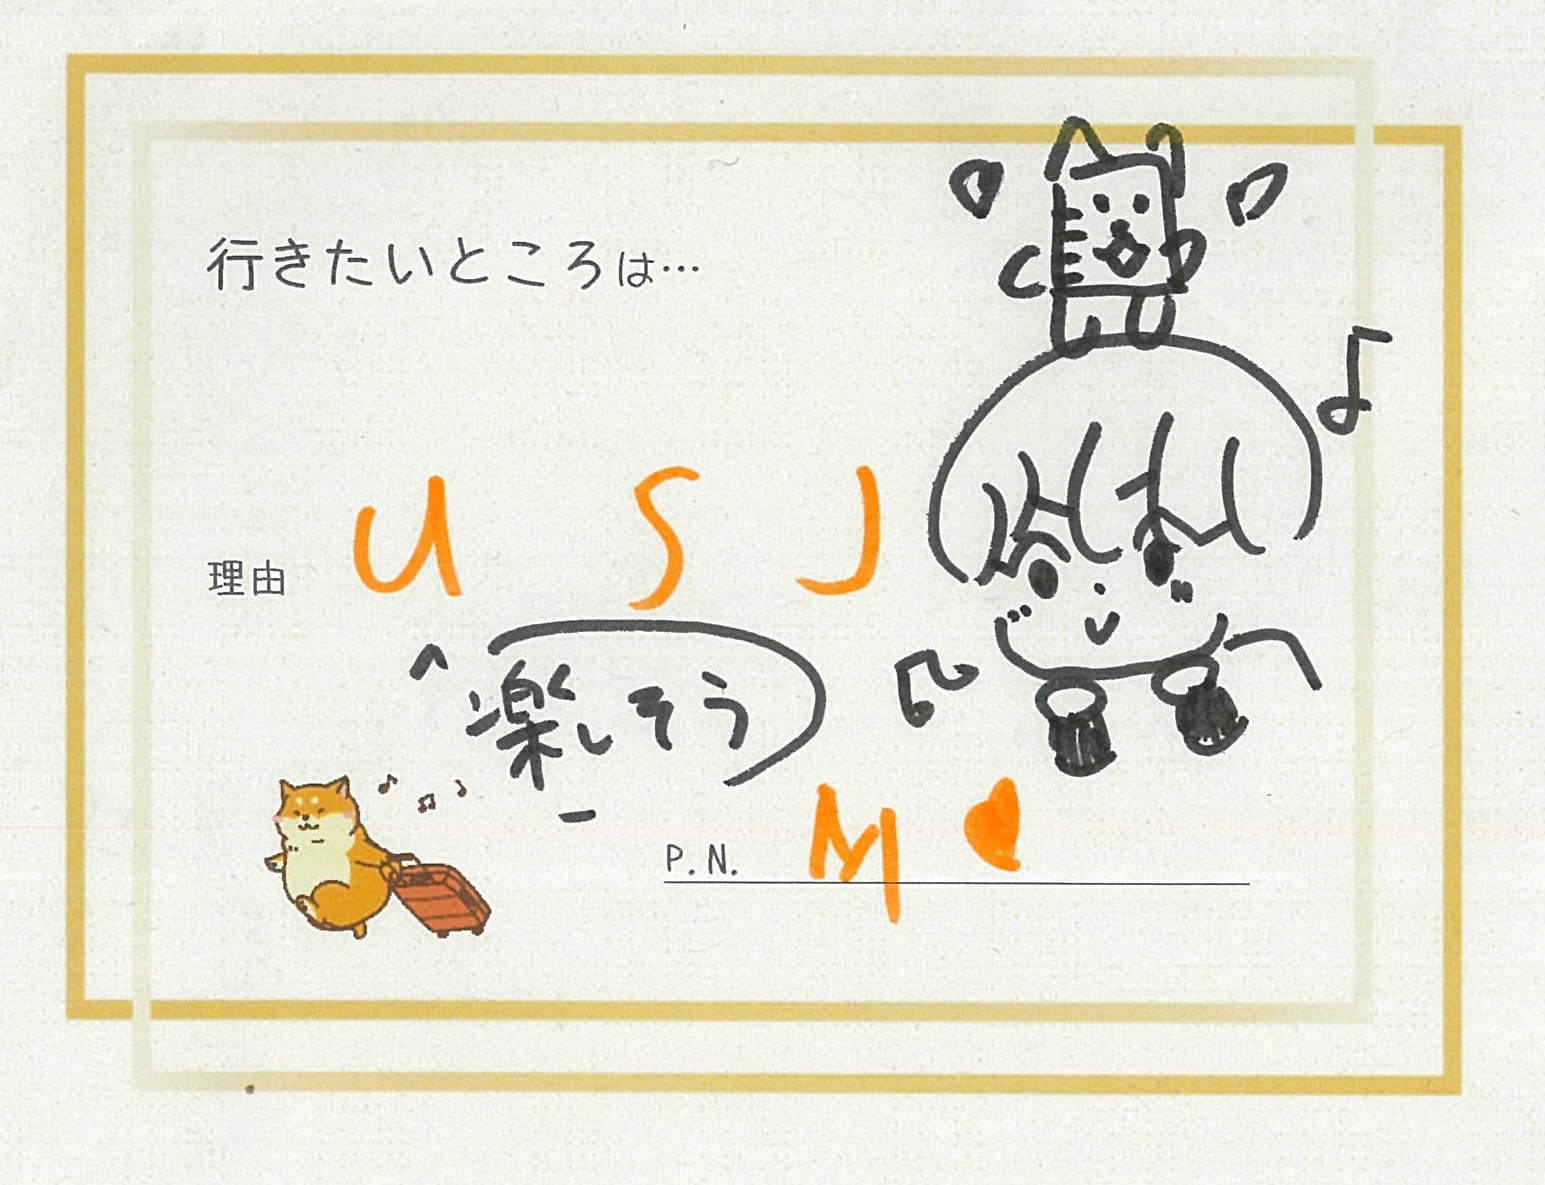 行きたいところは…
U S J
理由
楽しそう
P.N. M